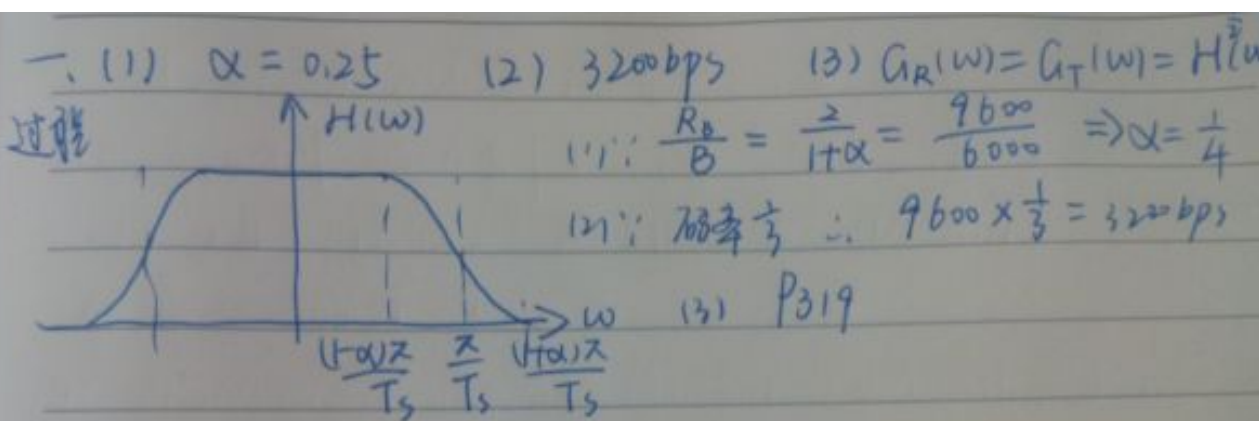 一、(1) α = 0.25 (2) 3200bps (3) G_R(ω) = G_T(ω) = H^{1/2}(ω
过程
H(ω)
(1) ∵ R_B/B = 2/(1+α) = 9600/6000 ⇒ α = 1/4
(2) ∵ 码率 1/3 ∴ 9600 × 1/3 = 3200bps
ω (3) P319
(1-α)π/T_s π/T_s (1+α)π/T_s